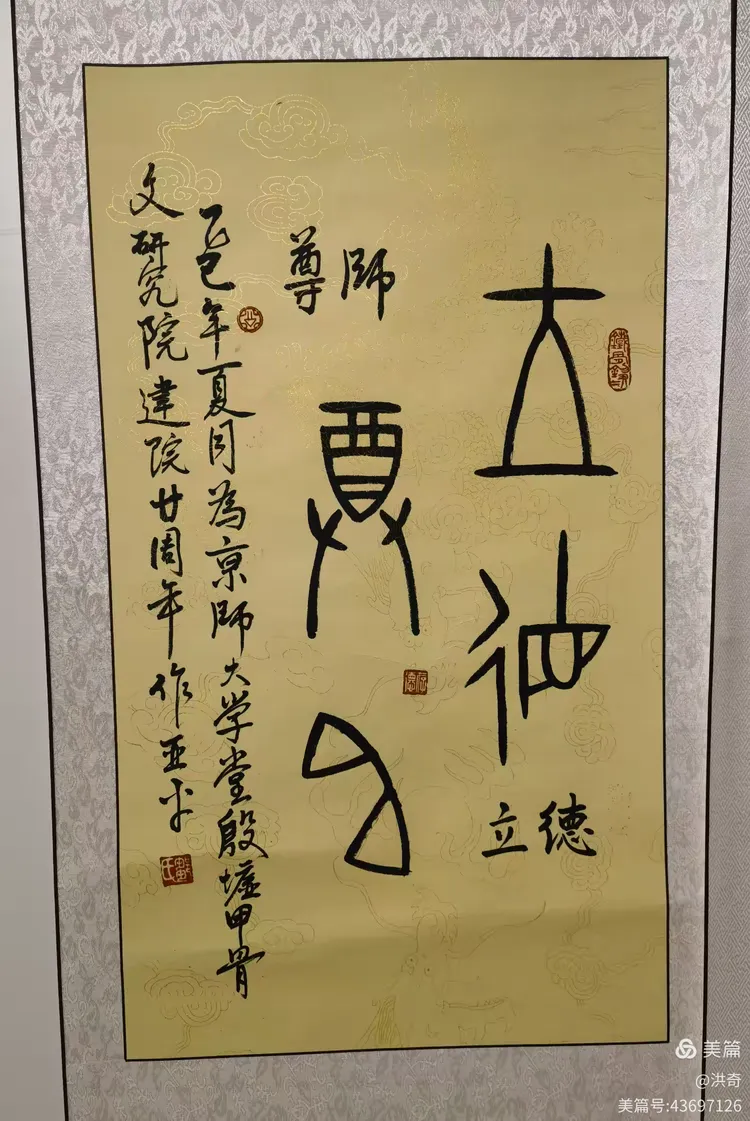 立德
尊師
立德
尊師
乙巳年夏月為京師大学堂殷墟甲骨
文研究院建院廿周年作亚平
美篇
@洪奇
美篇号:43697126